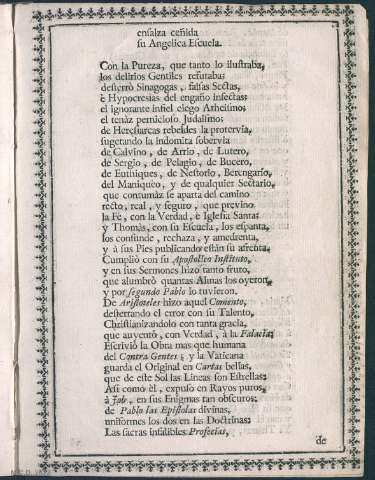 ensalza ceñida
su Angelica Escuela.
Con la Pureza, que tanto lo ilustraba,
los delirios Gentiles refutaba:
desterrò Sinagogas, falsas Sectas,
è Hypocresias del engaño infectas:
el ignorante infiel ciego Atheismo:
el tenàz pernicioso Judaismo:
de Heresiarcas rebeldes la protervia,
sugetando la indomita sobervia
de Calvino, de Arrio, de Lutero,
de Sergio, de Pelagio, de Bucero,
de Euthiques, de Nestorio, Berengario,
del Maniqueo, y de qualquier Sectario,
que contumàz se aparta del camino
recto, real, y seguro, que previno
la Fè, con la Verdad, è Iglesia Santa:
y Thomàs, con su Escuela, los espanta,
los confunde, rechaza, y amedrenta,
y à sus Pies publicando estàn su afrenta.
Cumpliò con su Apostolico Instituto,
y en sus Sermones hizo tanto fruto,
que alumbrò quantas Almas los oyeron,
y por segundo Pablo lo tuvieron.
De Aristoteles hizo aquel Comento,
desterrando el error con su Talento,
Christianizandolo con tanta gracia,
que auyentò, con Verdad, à la Falacia:
Escriviò la Obra mas que humana
del Contra Gentes; y la Vaticana
guarda el Original en Cartas bellas,
que de este Sol las Lineas son Estrellas:
Asi como èl, expuso en Rayos puros,
à Job, en sus Enigmas tan obscuros:
de Pablo las Epistolas divinas,
uniformes los dos en las Doctrinas:
Las sacras infalibles Profecias,
de